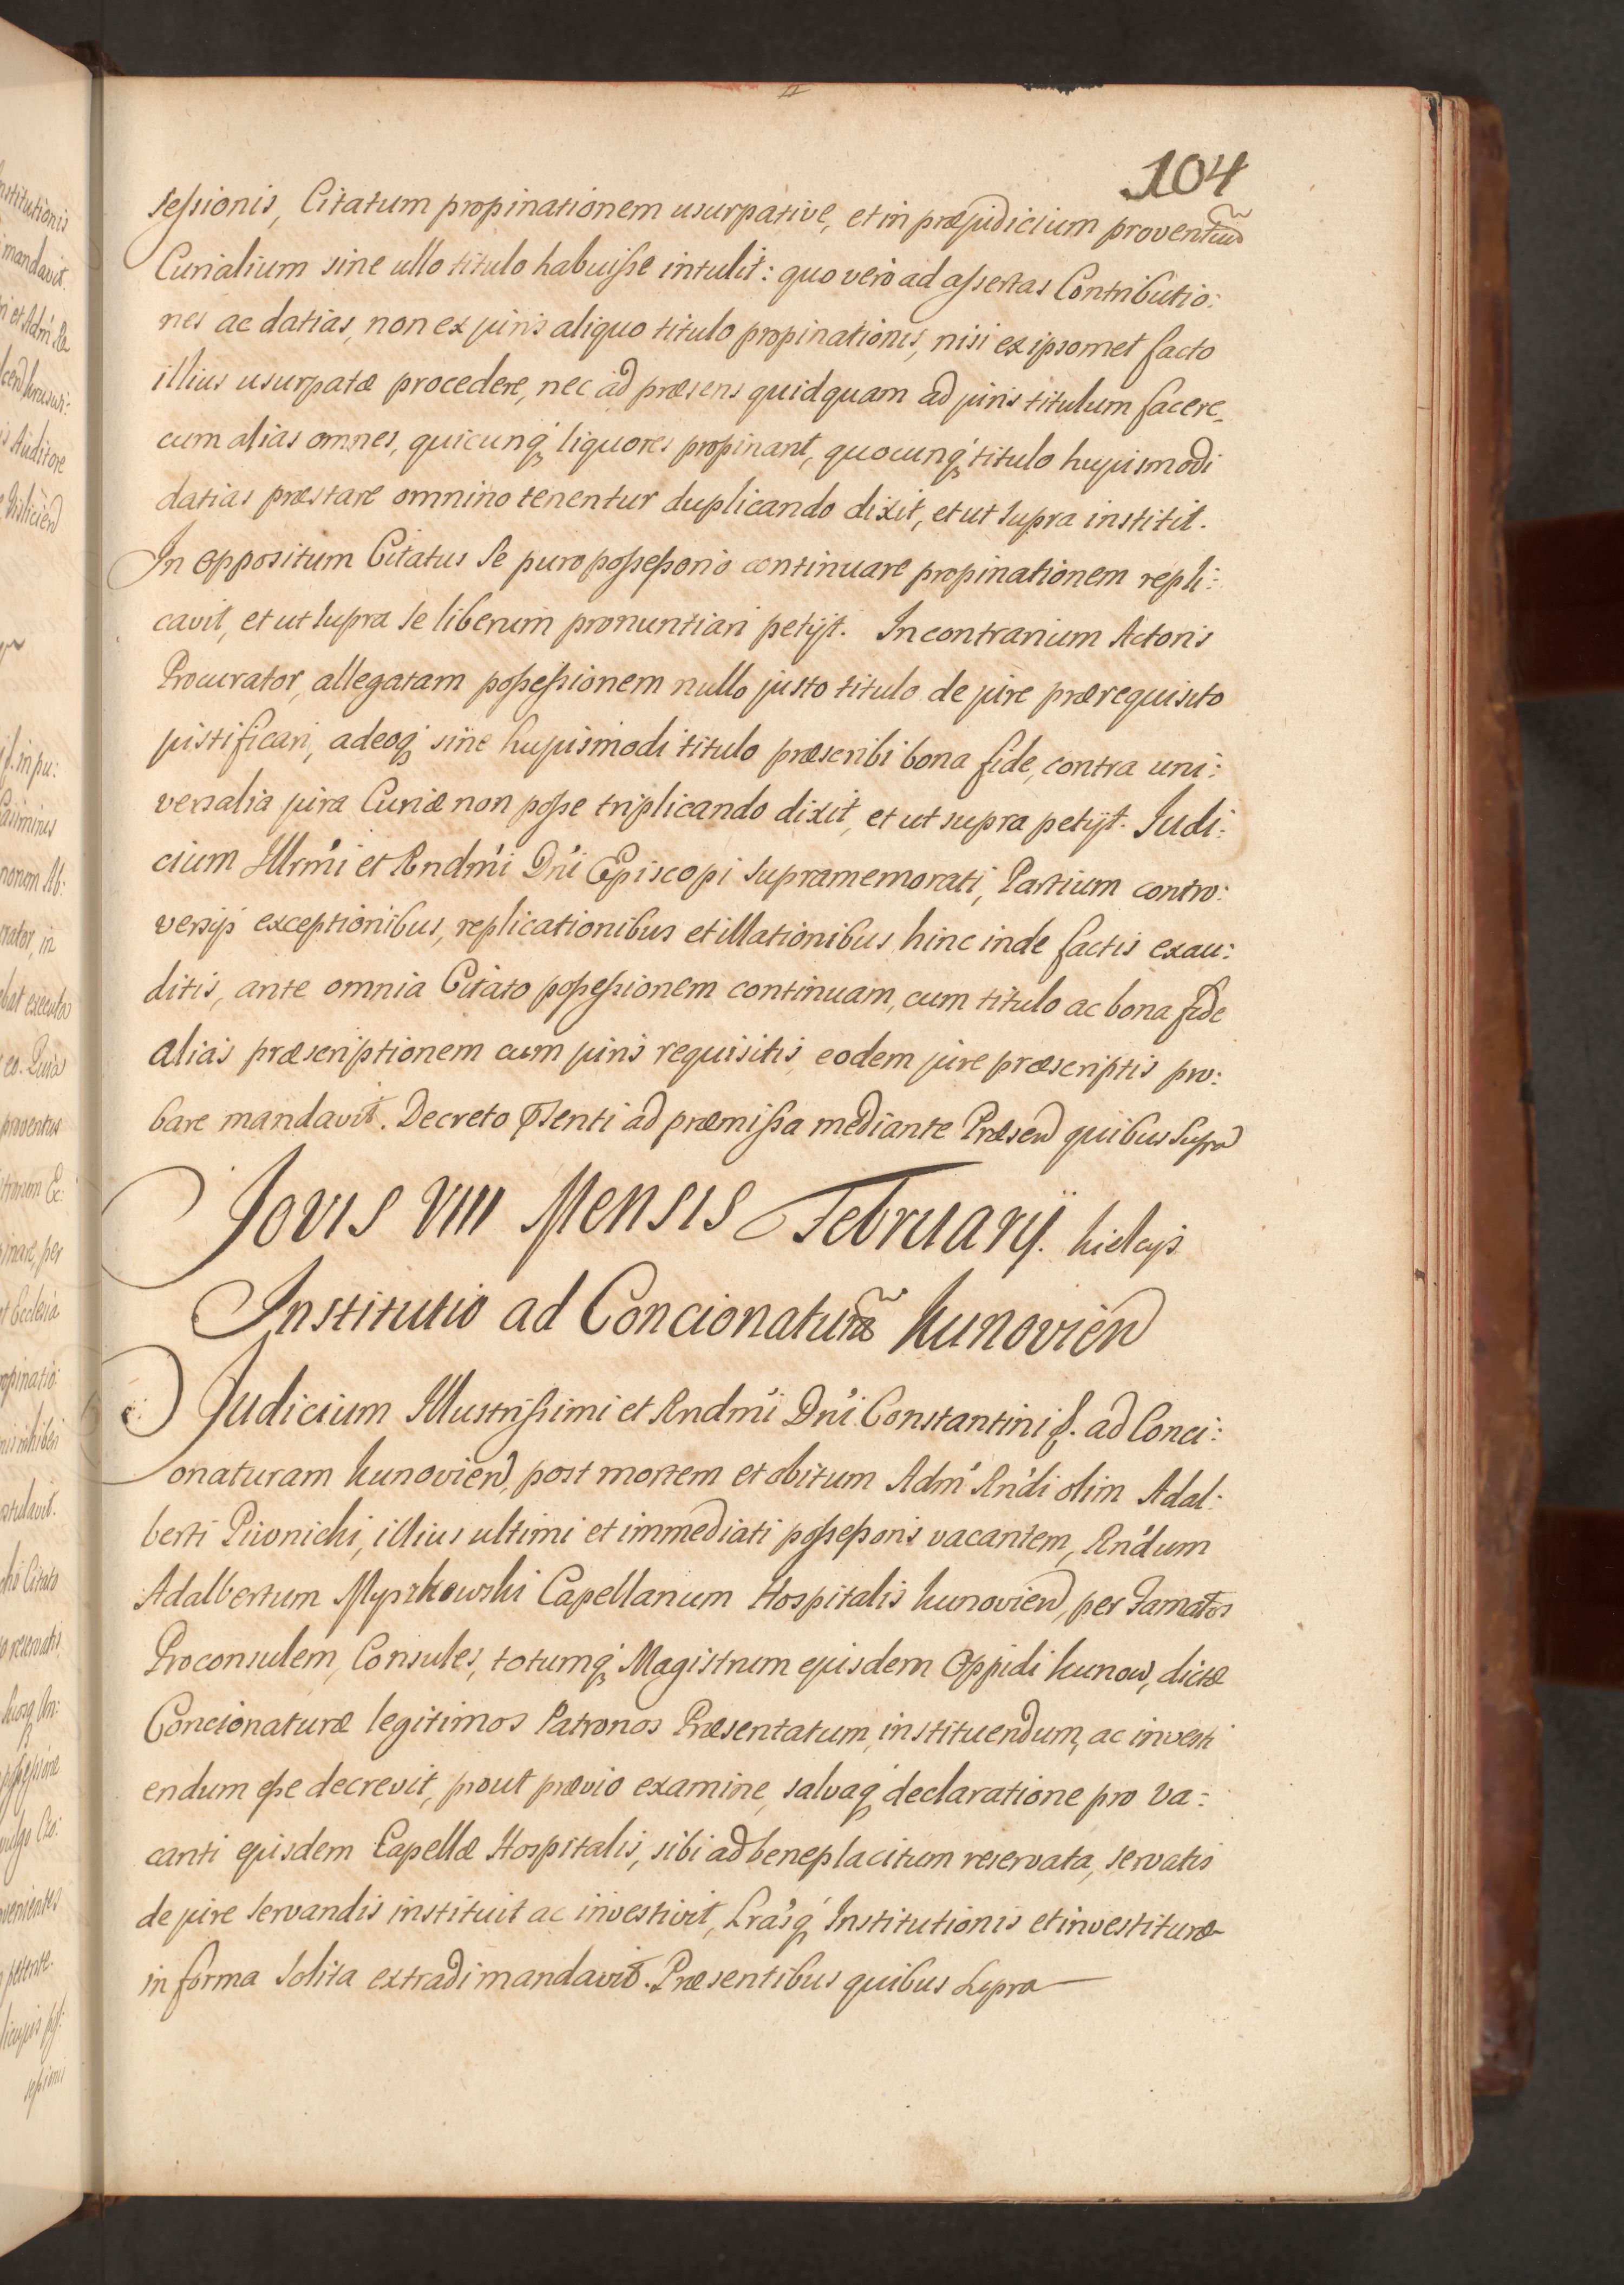 104
sessionis, Citatum propinationem usurpative, et in præjudicium proventuũ
Curialium sine ullo titulo habuisse intulit: quo vero ad assertas Contributio:
nes ac datias, non ex juris aliquo titulo propinationis, nisi ex ipsomet facto
illius usurpatæ procedere, nec ad præsens quidquam ad juris titulum facere,
cum alias omnes, quicunq́ liquores propinant, quocunq́ titulo hujusmodi
datias præstare omnino tenentur duplicando dixit, et ut supra institit.
In oppositum Citatus Se puro possessorio continuare propinationem repli:
cavit, et ut supra se liberum pronuntiari petijt. In contrarium Actoris
Procurator, allegatam possessionem nullo justo titulo de jure prærequisito
justificari, adeoq́ sine hujusmodi titulo præscribi bona fide, contra uni:
versalia jura Curiæ non posse triplicando dixit, et ut supra petijt. Judi:
cium Illrmi et Rndmi Dni Episcopi supramemorati, Partium contro:
versijs exceptionibus, replicationibus et illationibus hinc inde factis exau:
ditis, ante omnia Citato possessionem continuam, cum titulo ac bona fide
alias præscriptionem cum juris requisitis eodem jure præscriptis pro:
bare mandavit. Decreto Psenti ad præmissa mediante Præsen quibus supra
Jovis VIII Mensis Februarij. Kielcijs
Institutio ad Concionaturã Kunovien
Judicium Illustrissimi et Rndmi Dni Constantini f. ad Conci:
onaturam Kunovien, post mortem et obitum Adm Rndi olim Adal:
berti Piwnicki, illius ultimi et immediati possessoris vacantem, Rndum
Adalbertum Myszkowski Capellanum Hospitalis Kunovien, per Famatos
Proconsulem, Consules, totumq́ Magistrum ejusdem Oppidi Kunow, dictæ
Concionaturæ legitimos Patronos Præsentatum, instituendum, ac investi
endum esse decrevit, prout prævio examine, salvaq́ declaratione pro va:
canti ejusdem Capellæ Hospitalis, sibi ad beneplacitum reservata, servatis
de jure servandis instituit ac investivit, Lrasq́ Institutionis et investituræ
in forma solita extradi mandavit. Præsentibus quibus supra